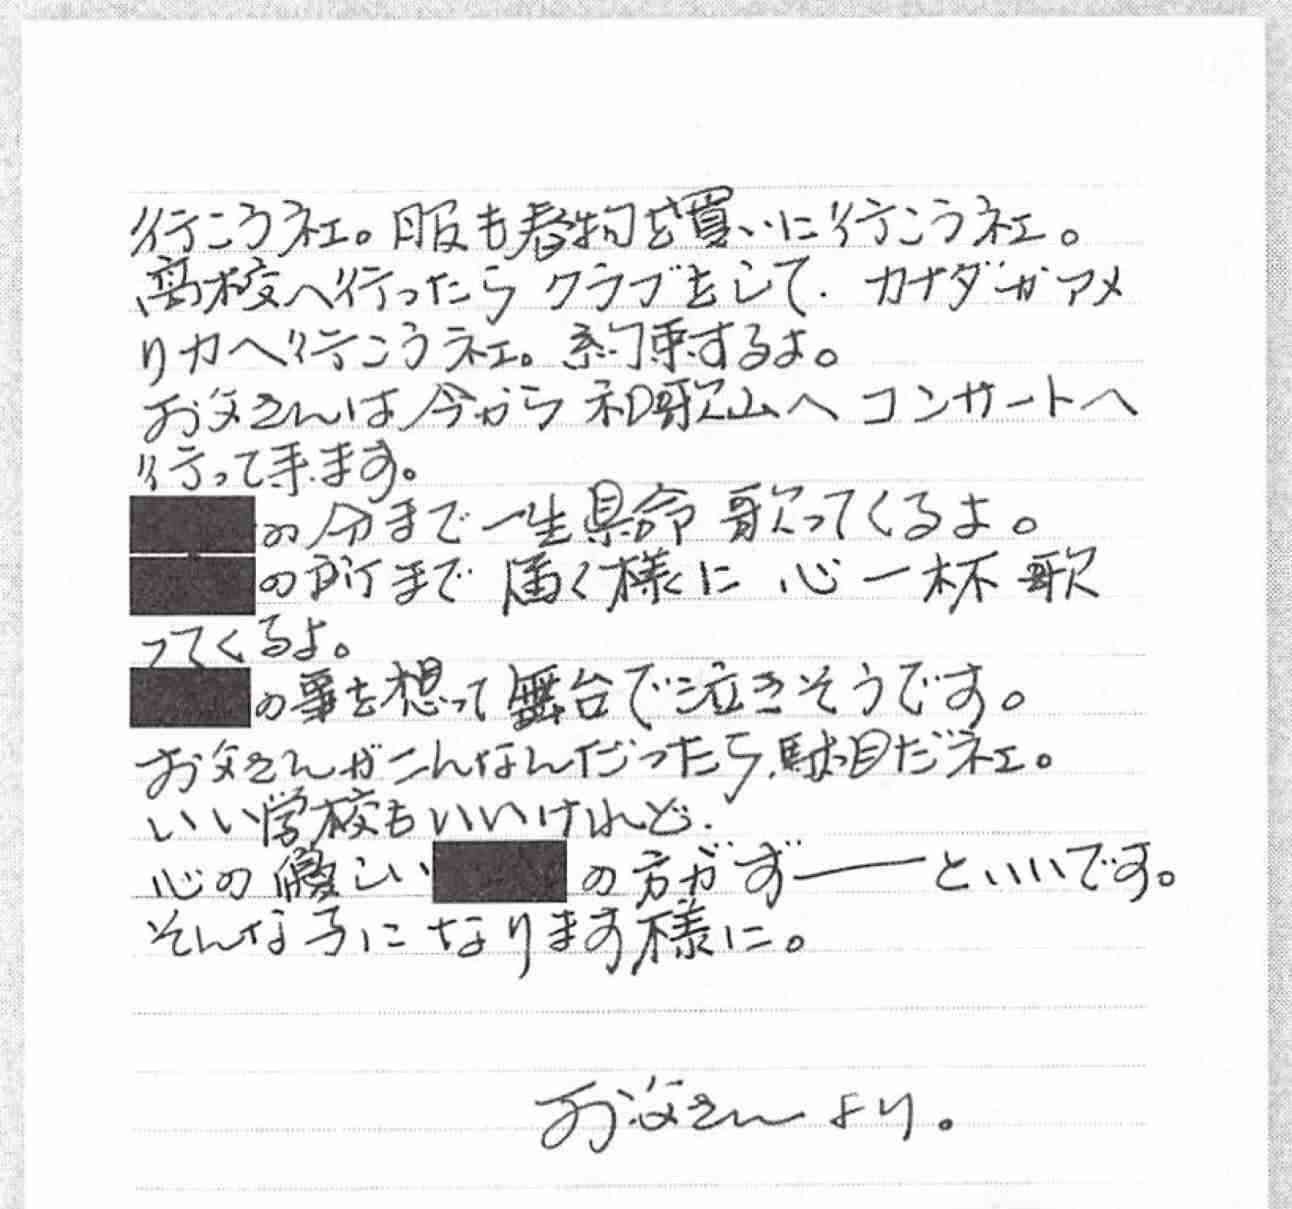 行こうネェ。服も春物を買いに行こうネェ。
高校へ行ったらクラブをして、カナダかアメ
リカへ行こうネェ。約束するよ。
お父さんは今から和歌山へコンサートへ
行って来ます。
の分まで一生県命歌ってくるよ。
の所まで届く様に心一杯歌
ってくるよ。
の事を想って舞台で泣きそうです。
お父さんがこんなんだったら、駄目だネェ。
いい学校もいいけれど、
心の優しいの方がずーーーといいです。
そんな子になります様に。
お父さんより。